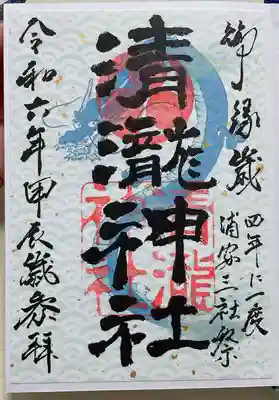 御縁歳
四年に一度
浦安三社祭
清瀧神社
令和六年甲辰歳参拝
清瀧
神社